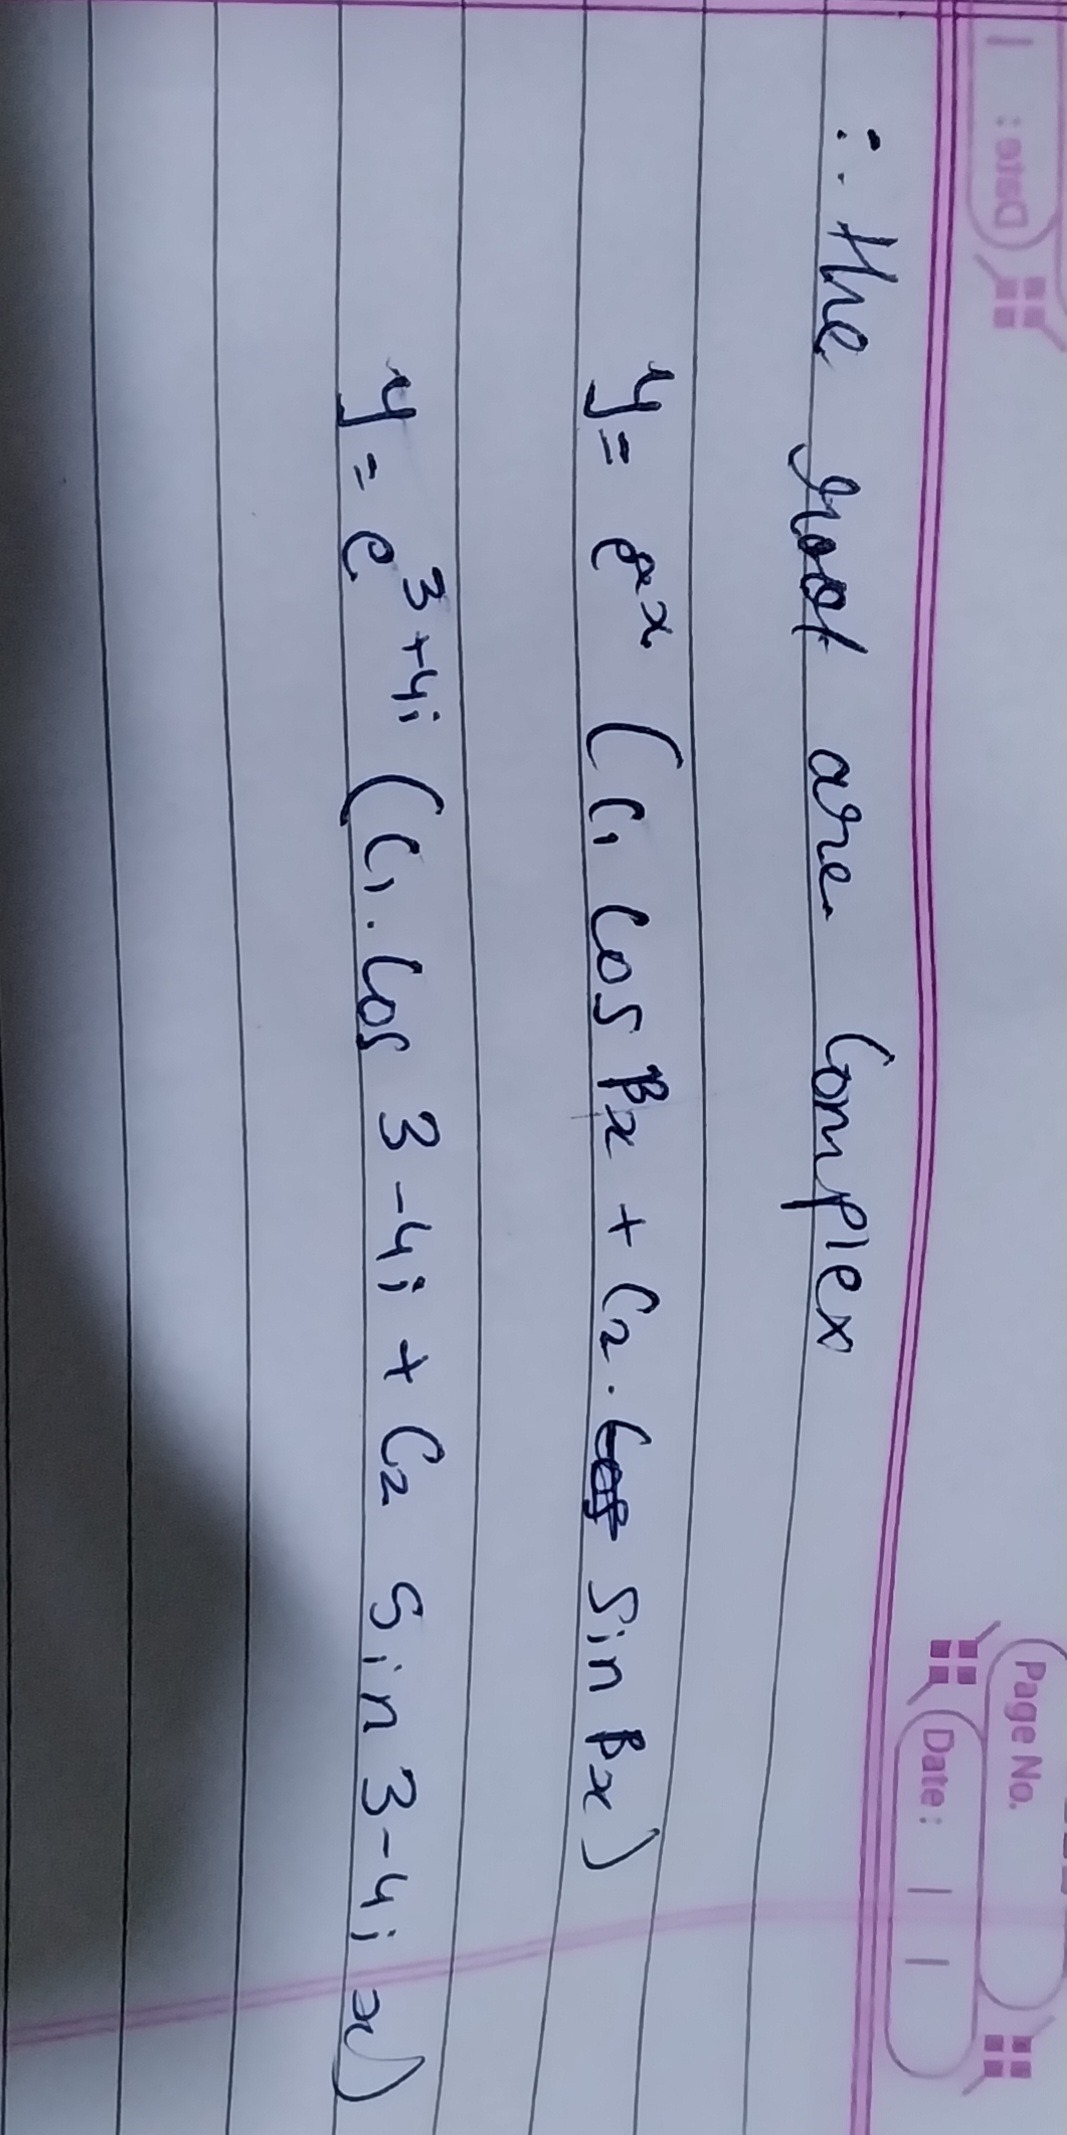 Date :
Page No.
Date :
∴ the root are Complex
y = e^αx (C₁ Cos βx + C₂ . Sin βx)
y = e^3+4i (C₁ . Cos 3-4i + C₂ Sin 3-4i x)